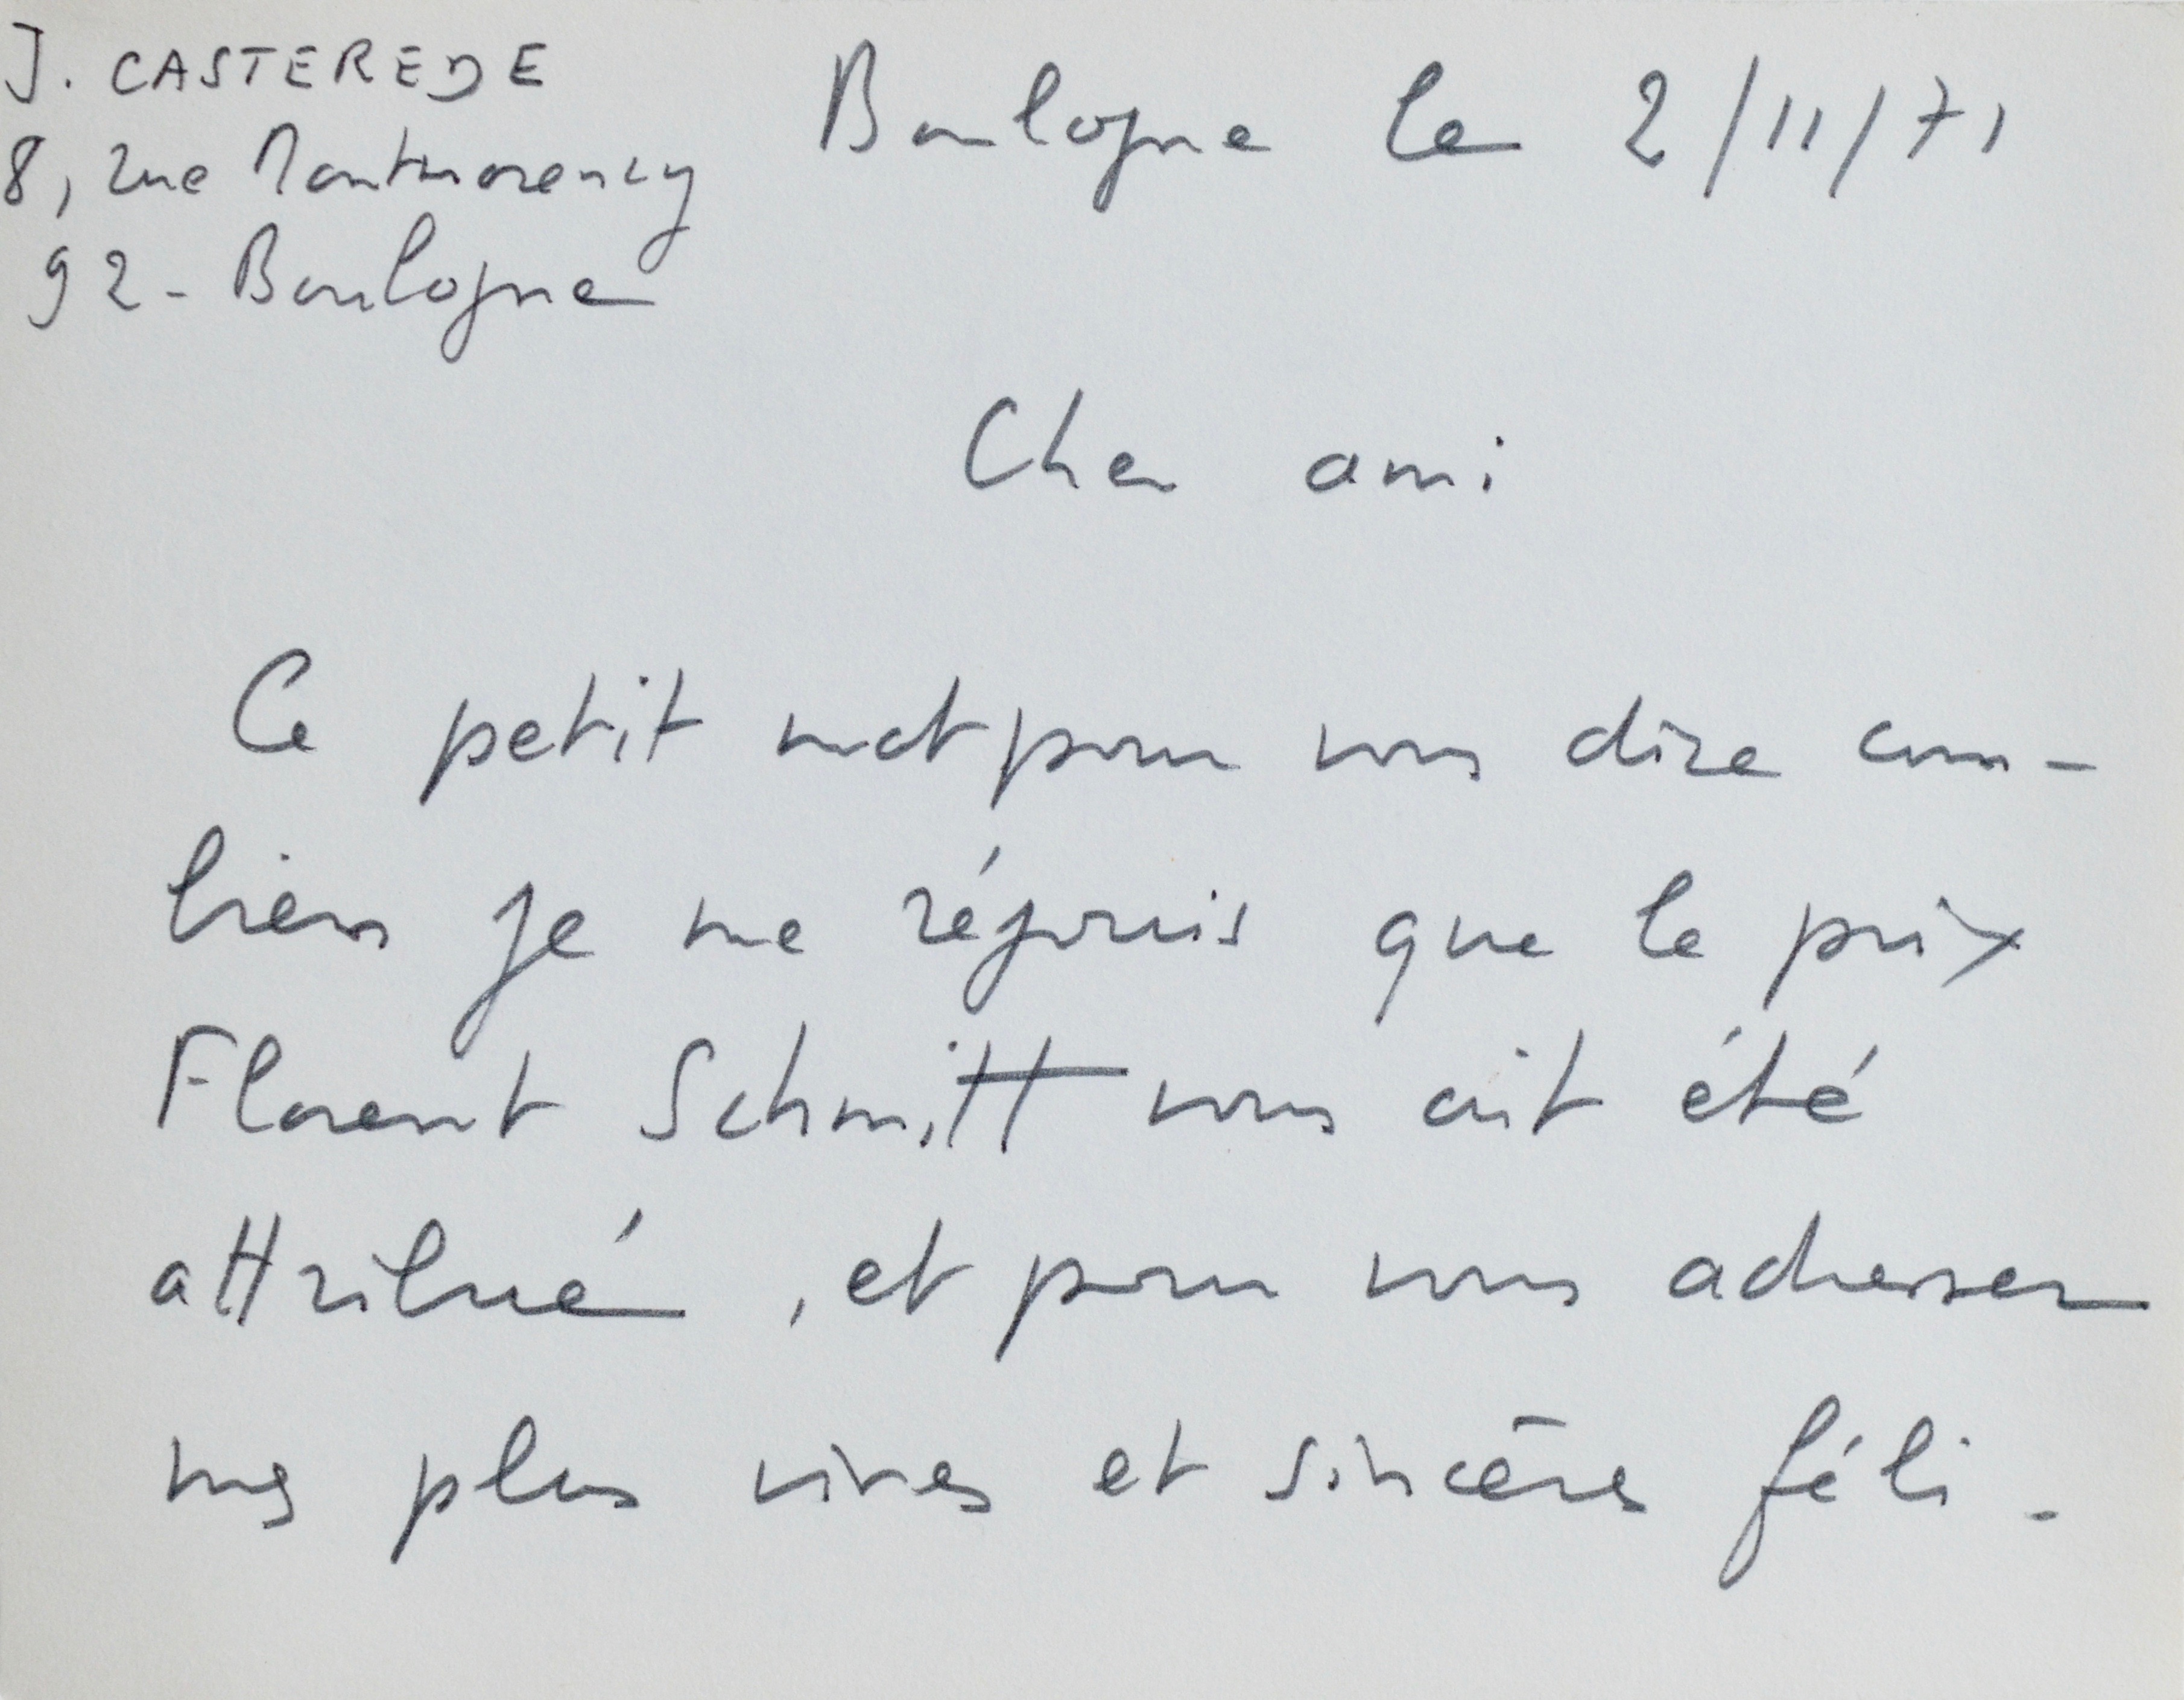 J. CASTEREDE
8, rue Montmorency
92 - Boulogne
Boulogne le 2/11/71
Cher ami
Ce petit mot pour vous dire com-
bien je me réjouis que le prix
Florent Schmitt vous ait été
attribué, et pour vous adresser
mes plus vives et sincères féli-